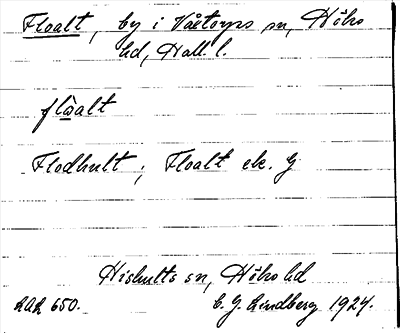 Floalt, by i Våxtorps sn, Höks
hd, Hall. l.
flåalt
Flodhult; Floalt ek. G
Hishults sn, Höks hd
LAL 650. C. G. Lindberg 1924.